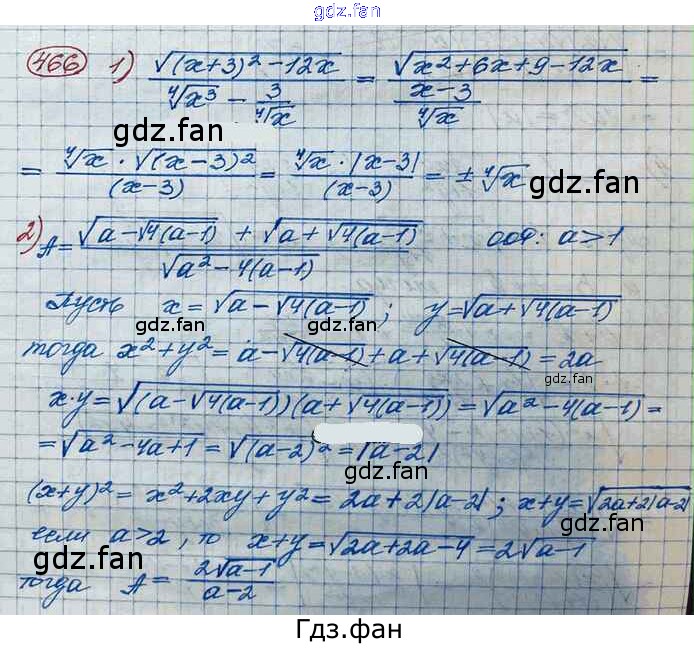 gdz.fan
466 1) √((x+3)² - 12x) / (⁴√x³ - 3/⁴√x) = √(x²+6x+9-12x) / ((x-3)/⁴√x) =
gdz.fan
= ⁴√x · √((x-3)²) / (x-3) = ⁴√x · |x-3| / (x-3) = ± ⁴√x
gdz.fan
2) A = (√(a-√4(a-1)) + √(a+√4(a-1))) / √(a²-4(a-1)) ООФ: a>1
gdz.fan
gdz.fan
Пусть x = √(a-√4(a-1)); y = √(a+√4(a-1))
gdz.fan
gdz.fan
тогда x²+y² = a-√4(a-1)+a+√4(a-1) = 2a
gdz.fan
x·y = √((a-√4(a-1))(a+√4(a-1))) = √(a²-4(a-1)) =
= √(a²-4a+1) = √((a-2)²) = |a-2|
gdz.fan
gdz.fan
(x+y)² = x²+2xy+y² = 2a+2|a-2|; x+y = √(2a+2|a-2|
если a>2, то x+y = √(2a+2a-4) = 2√(a-1)
gdz.fan
gdz.fan
тогда A = 2√(a-1) / (a-2)
gdz.fan
Гдз.фан